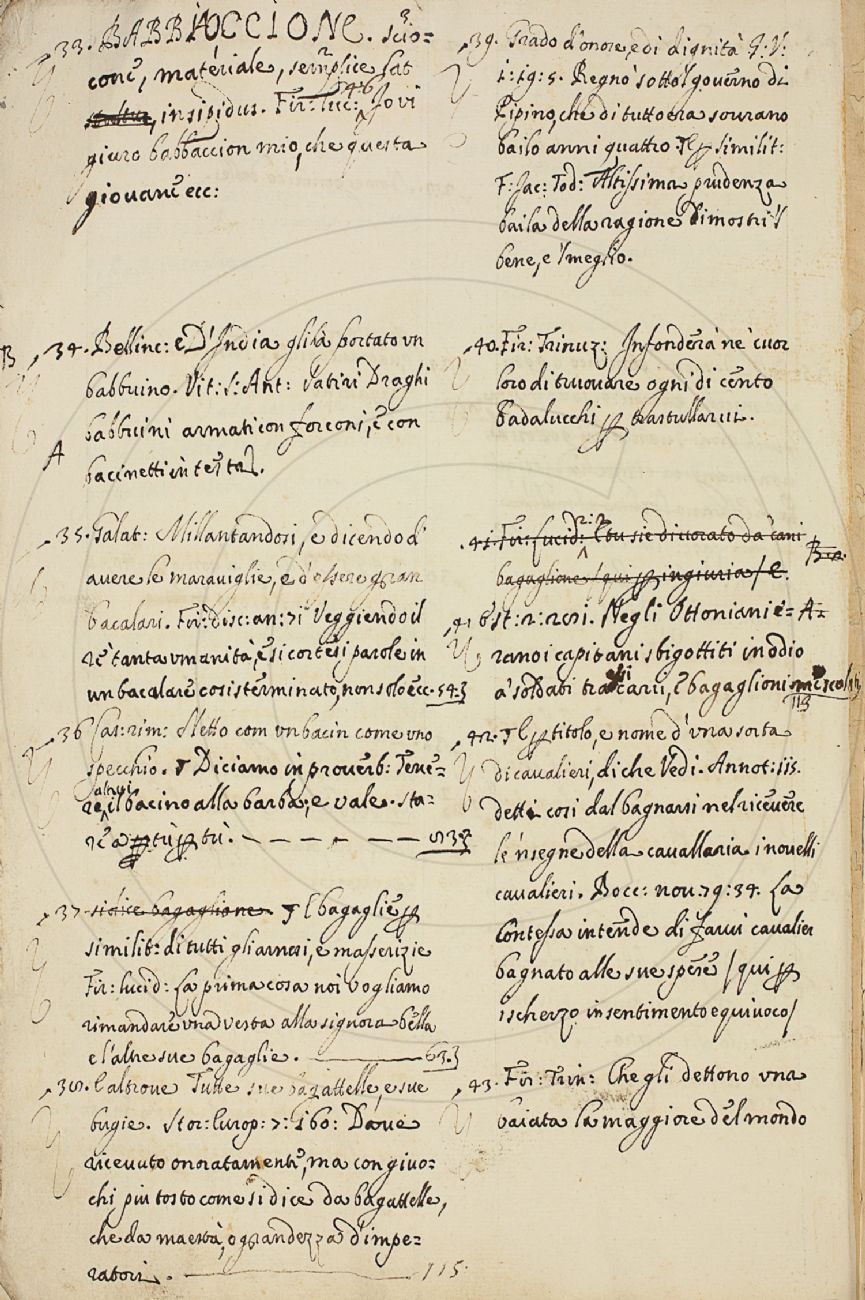 33. BABBACCIONE. scio=
cone, materiale, semplice lat
stultus, insipidus. Fir: luc: Jo vi
giuro babbaccion mio, che questa
giovane ecc:
B 34. Bellinc: E D'India gli fà portato un
babbuino. Vit: S: Ant: Satiri Draghi
A babbuini armati con forconi, e con
bacinetti in testa.
35. Galat: Millantandosi, e dicendo d'
avere le maraviglie, e d'essere gran
bacalari. Fir: disc: an: 71 Veggiendo il
rè tanta umanità, e si cortesi parole in
un bacalare così sterminato, non solo ecc. 54.}
36 Cas: rim: Netto com un bacin come uno
specchio. ¶ Diciamo in proverb: Tene=
altrui
re, il bacino alla barba, e vale. Sta=
re a tù p tù.
37. bagaglione. ¶ E bagaglie p
similit: di tutti gli arnesi, e masserizie
Fir: lucid: La prima cosa noi vogliamo
rimandare una vesta alla signora bella
e l'altre sue bagaglie. 63.}
38. E altrove Tutte sue bagattelle, e sue
bugie. Stor: Europ: 7: 160: Dave
ricevuto onoratamente, ma con giuo=
chi più tosto come si dice da bagattelle,
che da maestà, o grandezza d'impe=
ratori. 115.
39. Grado d'onore, e di dignità G: V:
1: 19: 5. Regnò sotto'l governo di
Pipino, che di tutto era sovrano
bailo anni quattro. ¶ E p similit:
F: Jac: Tod: Altissima prudenza
baila della ragione dimostri 'l
bene, e 'l meglio.
40. Fir: Trinuz: Infonderà ne' cuor
loro di truovare ogni dì cento
badalucchi p trastullarvi.
2:2
41. Fir: Lucid: E tu sie divorato da cani
bagaglione / qui p ingiuria / E.
41 Est: 2: 201. Negli Ottoniani e= A=
rano i capitani sbigottiti in odio
a' soldati tra carri, E bagaglioni mescolati
113
42. ¶ E p titolo, e nome d'una sorta
di cavalieri, di che Vedi. Annot: 115.
detti così dal bagnarsi nel ricevere
le 'nsegne della cavallaria i novelli
cavalieri. Bocc: nov: 79: 34. La
Contessa intende di farvi cavalier
bagnato alle sue spese / qui p
ischerzo in sentimento equivoco /
43. Fir: Trin: Che gli dettono una
baiata la maggiore del mondo